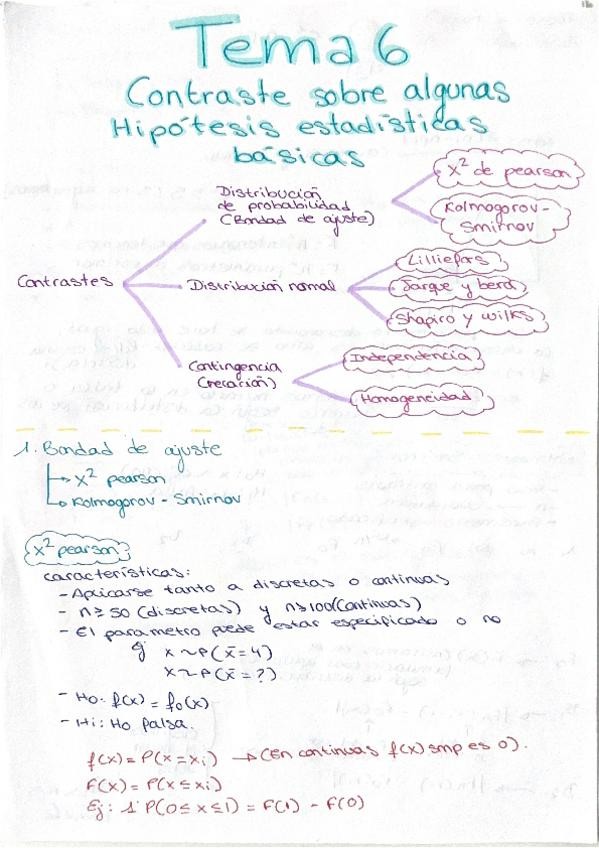 Tema 6
Contraste sobre algunas
Hipótesis estadísticas
básicas
Contrastes
Distribución
de probabilidad
(Bondad de ajuste)
X² de pearson
Kolmogorov-
Smirnov
Distribución normal
Lilliefors
Jarque y bera
Shapiro y wilks
Contingencia
Independencia
Homogeneidad
1. Bondad de ajuste
→ X² pearson
→ Kolmogorov - Smirnov
X² pearson
características:
- Aplicarse tanto a discretas o continuas
- n ≥ 50 (discretas) y n ≥ 100 (Continuas)
- El parametro puede estar especificado o no
ej x ~ P(x̄ = 4)
x ~ P(x̄ = ?)
- Ho: f(x) = f₀(x)
- Hi: Ho Falsa.
f(x) = P(x = xi) → (En continuas f(x) smp es 0).
F(x) = P(x ≤ xi)
Ej: 1. P(0 ≤ x ≤ 1) = F(1) - F(0)